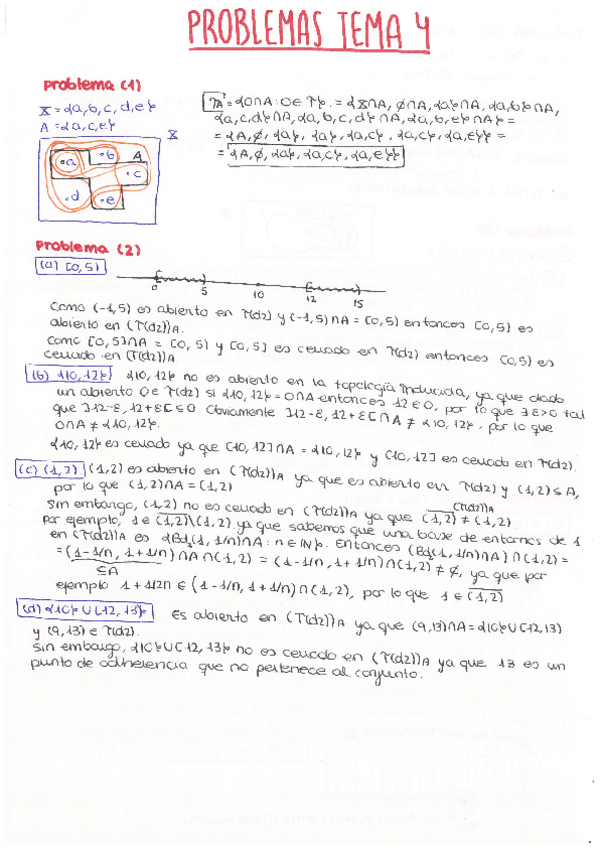 PROBLEMAS TEMA 4
Problema (1)
X = {a, b, c, d, e}
A = {a, c, e}
X
a b A c d e
T_A = {O∩A : O ∈ T} = {X∩A, ∅∩A, {a}∩A, {a,b}∩A,
{a,c,d}∩A, {a,b,c,d}∩A, {a,b,e}∩A} =
= {A, ∅, {a}, {a}, {a,c}, {a,c}, {a,e}} =
= {A, ∅, {a}, {a,c}, {a,e}}
Problema (2)
(a) [0,5)
0 5 10 12 15
Como (-1,5) es abierto en T(d2) y (-1,5)∩A = [0,5) entonces [0,5) es
abierto en (T(d2))A.
Como [0,5]∩A = [0,5) y [0,5] es cerrado en T(d2) entonces [0,5) es
cerrado en (T(d2))A.
(b) {10,12} {10,12} no es abierto en la topología inducida, ya que dado
un abierto O∈T(d2) si {10,12} = O∩A entonces 12∈O, por lo que ∃ε>0 tal
que ]12-ε, 12+ε[ ⊆ O Obviamente ]12-ε, 12+ε[∩A ≠ {10,12}, por lo que
O∩A ≠ {10,12}.
{10,12} es cerrado ya que [10,12]∩A = {10,12} y [10,12] es cerrado en T(d2).
(c) (1,2) (1,2) es abierto en (T(d2))A ya que es abierto en T(d2) y (1,2)⊆A,
por lo que (1,2)∩A = (1,2)
Sin embargo, (1,2) no es cerrado en (T(d2))A ya que (1,2) ≠ (1,2).
Por ejemplo, 1∈(1,2)\(1,2) ya que sabemos que una base de entornos de 1
en (T(d2))A es {Bd(1,1/n)∩A : n∈IN}. Entonces (Bd(1,1/n)∩A)∩(1,2) =
= (1-1/n, 1+1/n)∩A∩(1,2) = (1-1/n, 1+1/n)∩(1,2) ≠ ∅, ya que por
⊆A
ejemplo 1+1/2n ∈ (1-1/n, 1+1/n)∩(1,2), por lo que 1∈(1,2)
(d) {10}∪[12,13) Es abierto en (T(d2))A ya que (9,13)∩A = {10}∪[12,13)
y (9,13)∈T(d2).
Sin embargo, {10}∪[12,13) no es cerrado en (T(d2))A ya que 13 es un
punto de adherencia que no pertenece al conjunto.